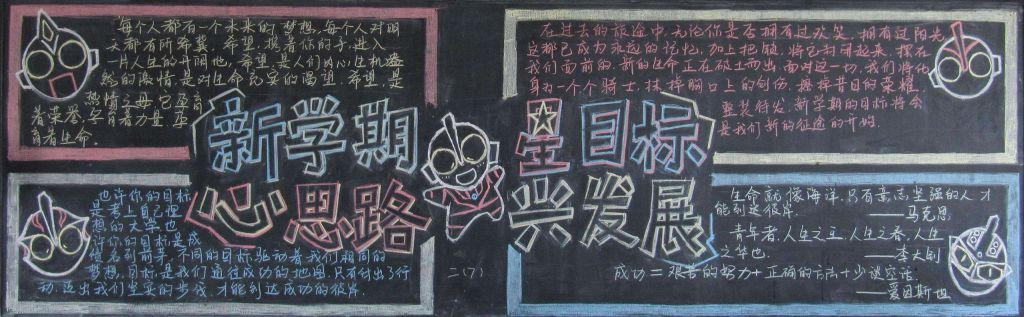 每个人都有一个未来的梦想,每个人对明
天都有所希冀,希望,携着你的手,进入
一片人生的开阔地,希望,是人们内心生机盎
然的激情,是对生命充实的渴望,希望,是
热情之母,它孕育
着荣誉,孕育着力量,孕
育着生命.
新学期
心思路
星目标
兴发展
在过去的旅途中,无论你是否拥有过欢笑,拥有过阳光
这都已成为永远的记忆,加上把锁,将它封闭起来,摆在
我们面前的,新的生命正在破土而出,面对这一切,我们将化
身为一个个骑士,抹掉胸口上的创伤,摒掉昔日的荣耀,
整装待发,新学期的目标将会
是我们新的征途的开始.
也许你的目标
是考上自己理
想的大学,也
许你的目标是成
绩名列前茅,不同的目标驱动着我们相同的
梦想,目标是我们通往成功的地图,只有付出了行
动,迈出我们坚实的步伐,才能到达成功的彼岸.
二(7)
生命就像海洋,只有意志坚强的人才
能到达彼岸.
——马克思
青年者,人生之王,人生之春,人生
之华也.
——李大钊
成功=艰苦的努力+正确的方法+少谈空话
——爱因斯坦